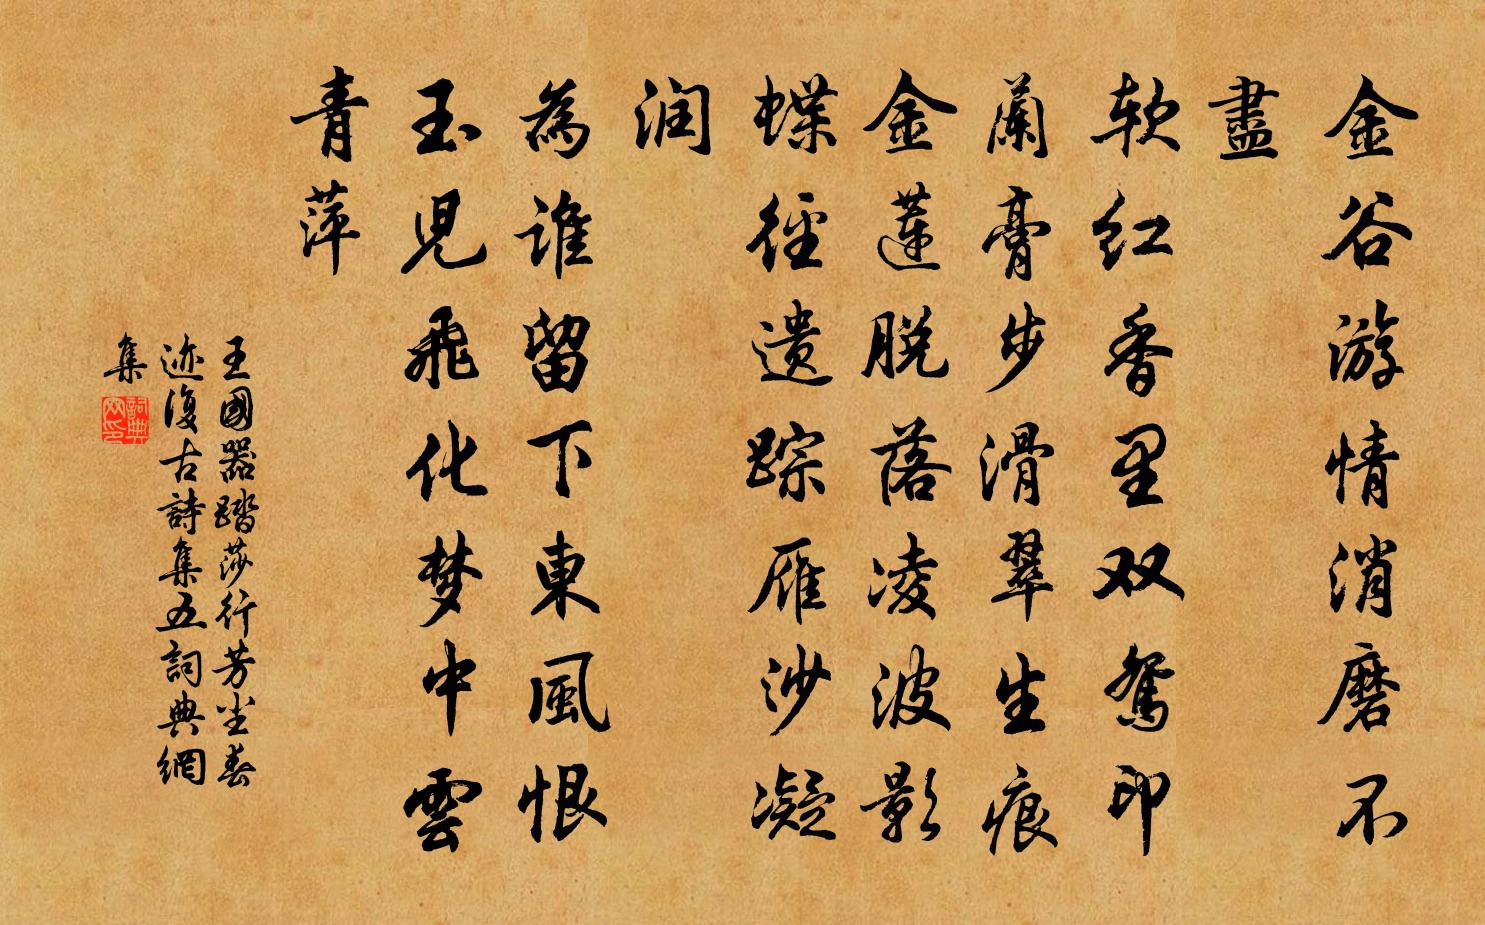 金谷游情消磨不
盡
软红香里双鸳印
蘭膏步滑翠生痕
金莲脱落凌波影
蝶径遗踪雁沙凝
润
為谁留下東風恨
玉児飛化梦中雲
青萍
王國器踏莎行芳尘春
迹復古詩集五詞典網
集
詞典
网印